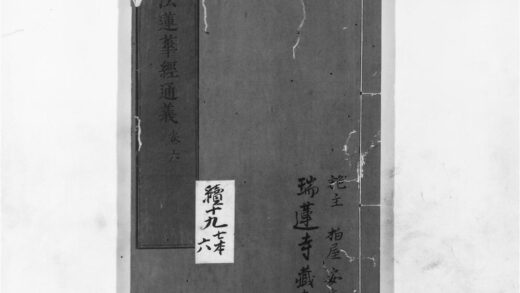 施主 柏屋安
瑞蓮寺藏
續十九七本
六
法蓮華經通義 卷六